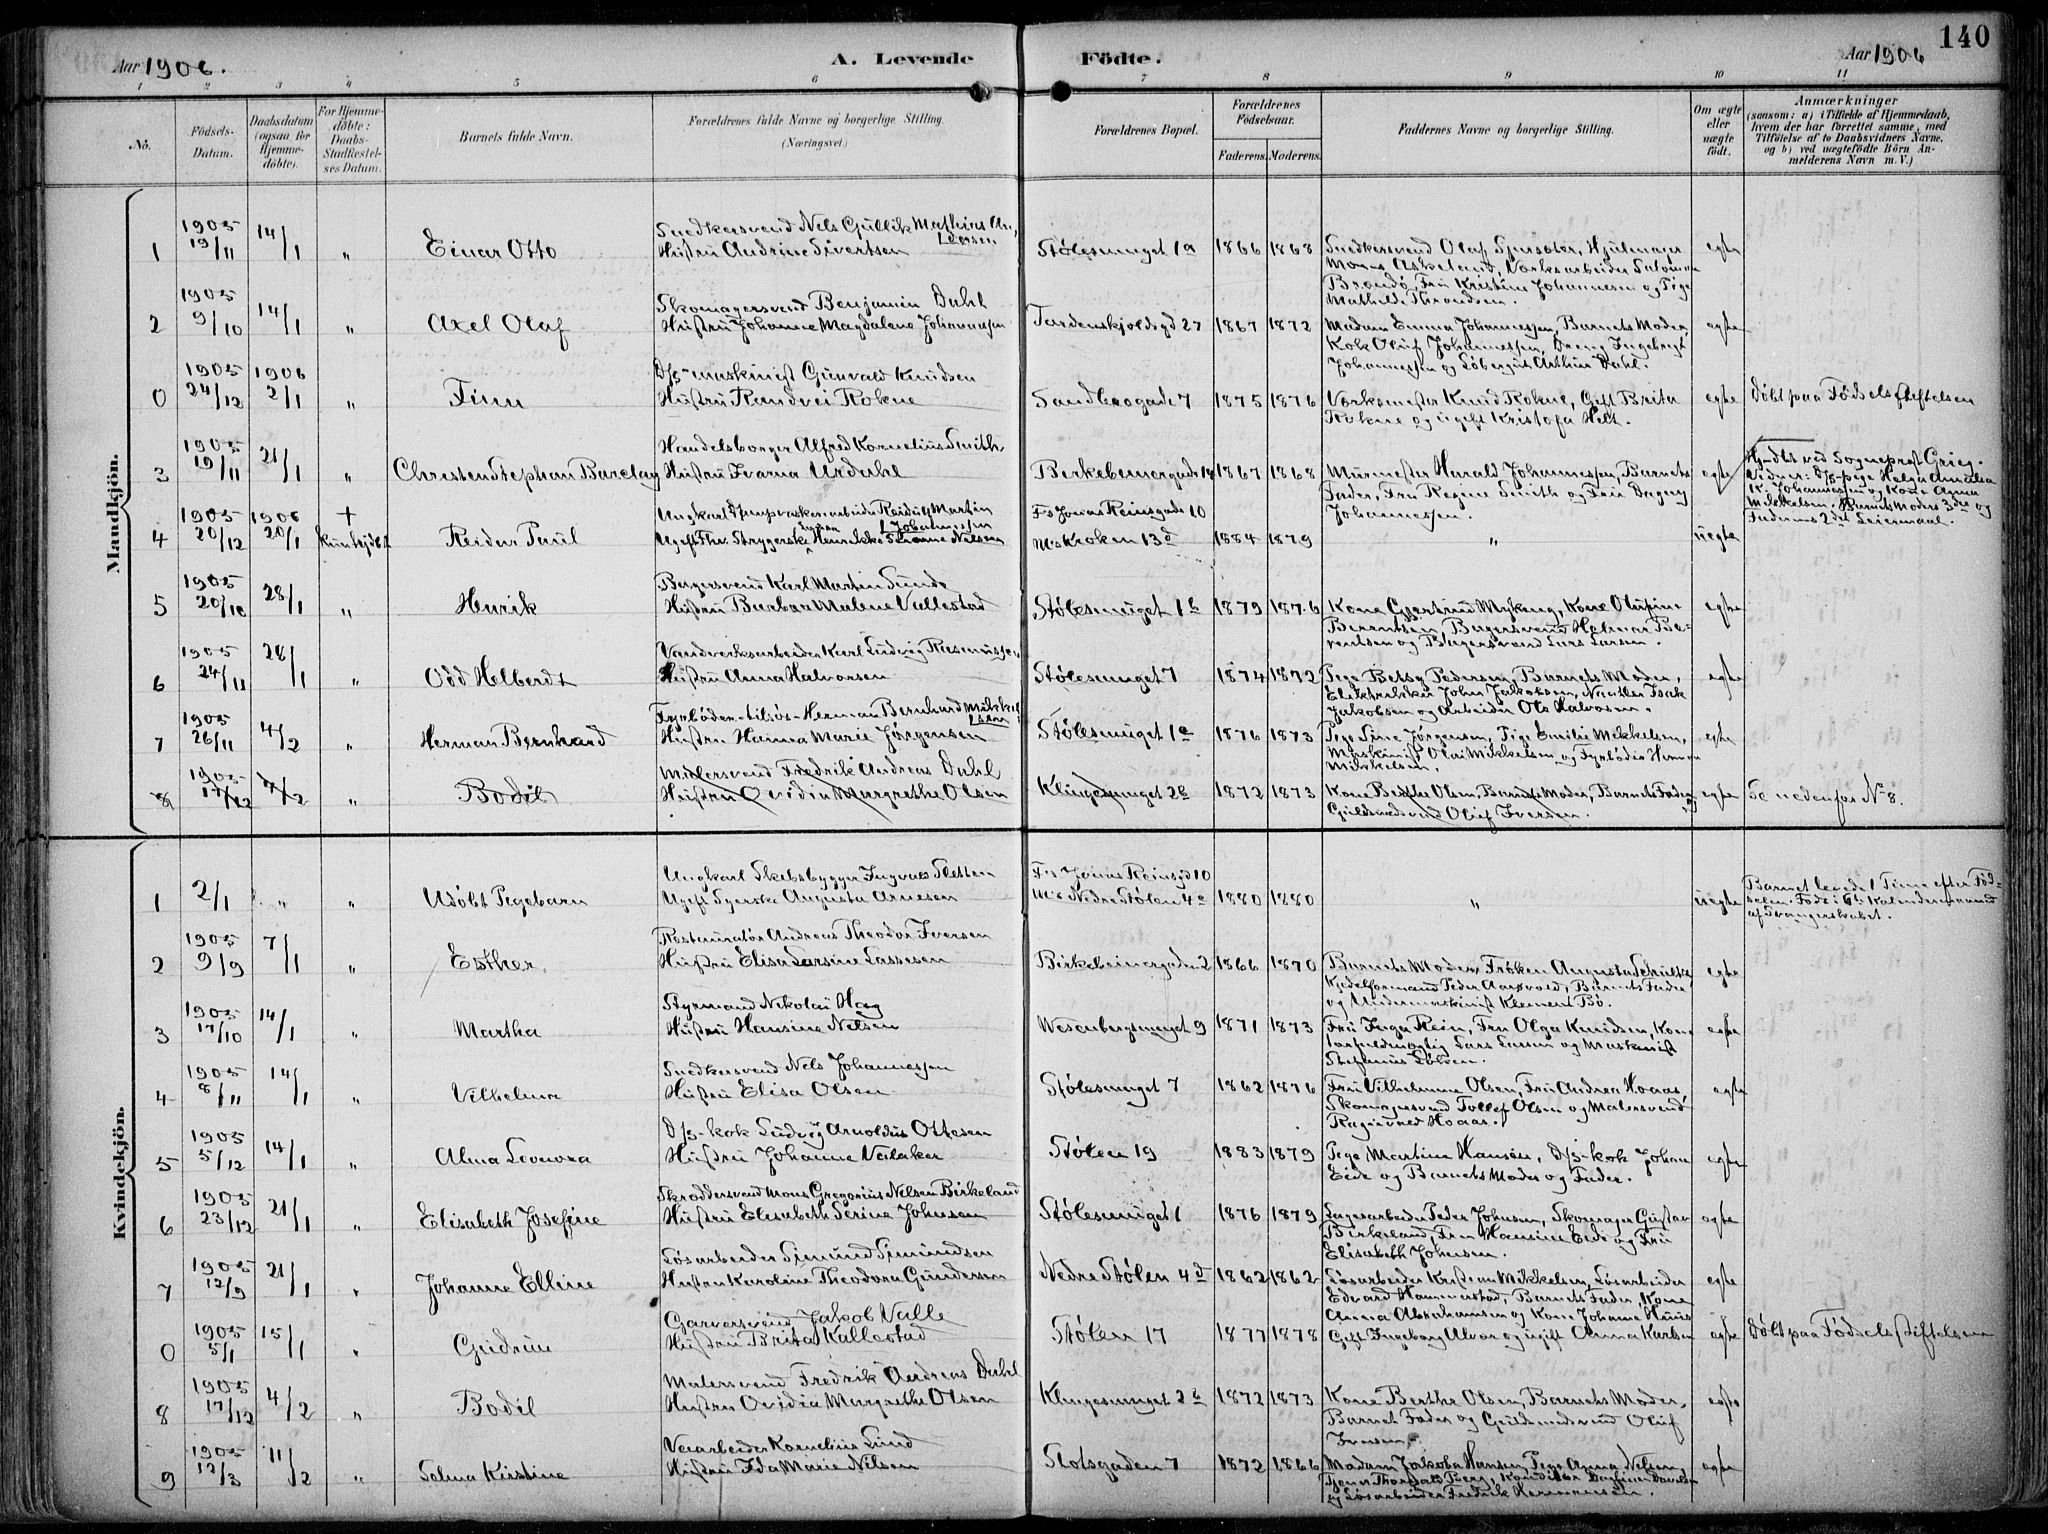 140
Aar 1906.
A. Levende
Födte.
Aar 1906
1 2 3 4 5 6 7 8 9 10 11
No.
Födsels-
Datum.
Daabsdatum
(ogsaa for
Hjemme-
döbte).
For Hjemme-
döbte:
Daabs-
Stadfæstel-
ses Datum.
Barnets fulde Navn.
Forældrenes fulde Navne og borgerlige Stilling.
(Næringsvei.)
Forældrenes Bopæl.
Forældrenes
Födselsaar.
Faderens.
Moderens.
Faddernes Navne og borgerlige Stilling.
Om ægte
eller
uægte
födt.
Anmærkninger
(saasom: a) i Tilfælde af Hjemmedaab,
hvem der har forrettet samme, med
Tilföielse af to Daabsvidners Navne,
og b) ved uægtefödte Börn An-
melderens Navn m. V.)
Mandkjön.
1 1905 19/11 14/1 " Einar Otto
Snedkersvend Nels Gullik Mathias An-
dersen
Hustru Andrine Sivertsen
Stølesmuget 1a 1866 1868
Snedkersvend Olaf Gjersæter, Hjulmager
Mons Askeland, Verksarbeider Salomon
Brandø, Fru Kristine Johannesen og Pige
Mathilde Throndsen.
egte
2 1905 9/10 14/1 " Axel Olaf
Skomagersvend Benjamin Dahl
Hustru Johanne Magdalene Johannesen
Tordenskjoldsgd 27 1867 1872
Madam Emma Johannessen, Barnets Moder,
Kok Oluf Johannessen, Dreng Ingebrigt
Johannessen og Løbergut Arthur Dahl.
egte
0 1905 24/12 1906 2/1 " Finn
D/s-maskinist Gunvald Knudsen
Hustru Randvei Rokne
Sandbrogade 7 1875 1876
Verksmester Knud Rokne, Gift Brita
Rokne og ugift Kristofa Helt.
egte
Døbt paa Fødselsstiftelsen
3 1905 19/11 21/1 " Christen Stephan Barclay
Handelsborger Alfred Kornelius Smith
Hustru Ivarna Urdahl
Berkebeinergade 14 1867 1868
Murmester Harald Johannessen, Barnets
Fader, Fru Regine Smith og Fru Dagny
Johannessen.
egte
4 1905 20/12 1906 20/1 + Reidar Paul
Ungkarl Reidulf Martin
Johannessen
Ugift Strygerske Henrikke Nelsen
Fs Jonas Reinsgade 10
Ms Kroken 13d 1884 1879
"
uegte
Hjdbt ved Sogneprest Grieg.
Vidner: D/s-pige Helga Amalia
K. Johannessen og Kone Anna
Mikkelsen. Barnets Moders 3die og
Faderens 2det Leiermaal.
5 1905 20/10 28/1 " Henrik
Bagersvend Karl Martin Sunde
Hustru Barbara Malene Vallestad
Stølesmuget 1b 1879 1876
Kone Gjertrud Myking, Kone Olufine
Berentsen, Bagersvend Helmer Be-
rentsen og Bagersvend Lars Larsen.
egte
6 1905 24/11 28/1 " Odd Helberdt
Vandverksarbeider Karl Ludvig Rasmussen
Hustru Anna Halvorsen
Stølesmuget 7 1874 1872
Pige Betsy Pedersen, Barnets Moder,
Elektriker John Jakobsen, Isak
Jakobsen og Arbeider Ole Halvorsen.
egte
7 1905 26/11 4/2 " Herman Bernhard
Fyrbøder tilsøs Herman Bernhard Mikkel-
sen
Hustru Hanna Marie Jørgensen
Stølesmuget 1a 1876 1873
Pige Sine Jørgensen, Pige Emilie Mikkelsen,
Maskinist Olai Mikkelsen og Fyrbøder Herman
Mikkelsen.
egte
8 1905 17/12 4/2 " Bodil
Malersvend Fredrik Andreas Dahl
Hustru Ovidia Margrethe Olsen
Klingesmuget 2b 1872 1873
Kone Berthe Olsen, Barnets Moder, Barnets Fader og
Guldsmedsvend Oluf Iversen.
egte
Se nedenfor No 8.
Kvindekjön.
1 2/1 " " Udøbt Pigebarn
Ungkarl Skibsbygger Ingvald Sletten
Ugift Syerske Augusta Arnesen
Fs Jonas Reinsgd 10
Ms Nedre Stølen 4c 1880 1880
"
uegte
Barnet levede 1 Time efter Fød-
selen. Født i 6te Kalendermaaned
af Svangerskabet.
2 1905 9/9 7/1 " Esther
Restauratør Andreas Theodor Iversen
Hustru Elisa Larsine Lassesen
Birkebeinergaden 2 1866 1870
Barnets Moder, Frøken Augusta Schultz
Kjedelformand Peder Aarsvold, Barnets Fader
og Undermaskinist Klement Bø.
egte
3 1905 17/10 14/1 " Martha
Styrmand Nikolai Hag
Hustru Hansine Nilsen
Wesenbergsmuget 9 1871 1873
Fru Inga Rein, Fru Olga Knudsen, Kon-
torfuldmægtig Lars Larsen og Maskinist
Stefanus Løken.
egte
4 1905 8/11 14/1 " Vilhelmine
Snedkersvend Nels Johannessen
Hustru Elisa Olsen
Stølesmuget 7 1862 1876
Fru Vilhelmine Olsen, Fru Andrea Hoaas,
Skomagersvend Tollef Olsen og Malersvend
Ragnvald Hoaas.
egte
5 1905 5/12 14/1 " Alma Levovna
D/s-kok Ludvig Arnoldus Ottesen
Hustru Johanne Valaker
Stølen 19 1883 1879
Pige Martine Hansen, D/s-kok Johan
Eide og Barnets Moder og Fader.
egte
6 1905 23/12 21/1 " Elisabeth Josefine
Skræddersvend Mons Gregorius Nelsen Birkeland
Hustru Elisabeth Serine Johnsen
Stølesmuget 1 1876 1879
Lagerarbeider Peder Johnsen, Skomager Gustav
Birkeland, Fru Hansine Eide og Fru
Elisabeth Johnsen.
egte
7 1905 12/9 21/1 " Johanne Elline
Løsarbeider Simund Simundsen
Hustru Karoline Theodora Gundersen
Nedre Stølen 4d 1862 1862
Løsarbeider Kristian Mikkelsen, Løsarbeider
Edvard Hammerstad, Barnets Fader, Kone
Anna Abrahamsen og Kone Johanne Huus
egte
0 1905 5/1 15/1 " Gudrun
Garversvend Jakob Valle
Hustru Brita Kallestad
Stølen 17 1877 1878
Gift Ingeborg Alver og ugift Anna Karlsen
egte
Døbt paa Fødselsstiftelsen
8 1905 17/12 4/2 " Bodil
Malersvend Fredrik Andreas Dahl
Hustru Ovidia Margrethe Olsen
Klingesmuget 2b 1872 1873
Kone Berthe Olsen, Barnets Moder,
Barnets Fader og Guldsmedsvend Oluf
Iversen.
egte
9 1905 12/3 11/2 " Selma Kirstine
Veiarbeider Kornelius Lund
Hustru Ida Marie Nilsen
Slotsgaden 7 1872 1866
Madam Jakoba Hansen, Pige Anna Nelsen,
Tjener Thorvald Berg, Konditor Danielsen
og Løsarbeider Fredrik Hermansen.
egte